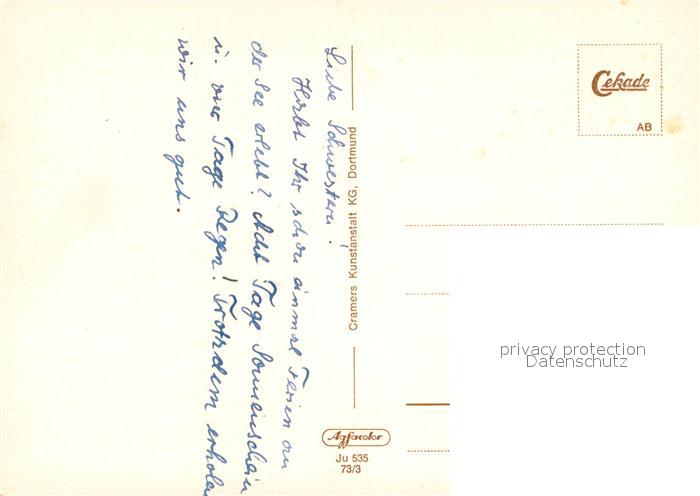 Liebe Schwestern!
Habt Ihr schon einmal Ferien an
der See erlebt? Acht Tage Sonnenschein
u. vier Tage Regen! Trotzdem erholen
wir uns gut.
Cramers Kunstanstalt KG, Dortmund
Cekade
AB
privacy protection
Datenschutz
Agfacolor
Ju 535
73/3